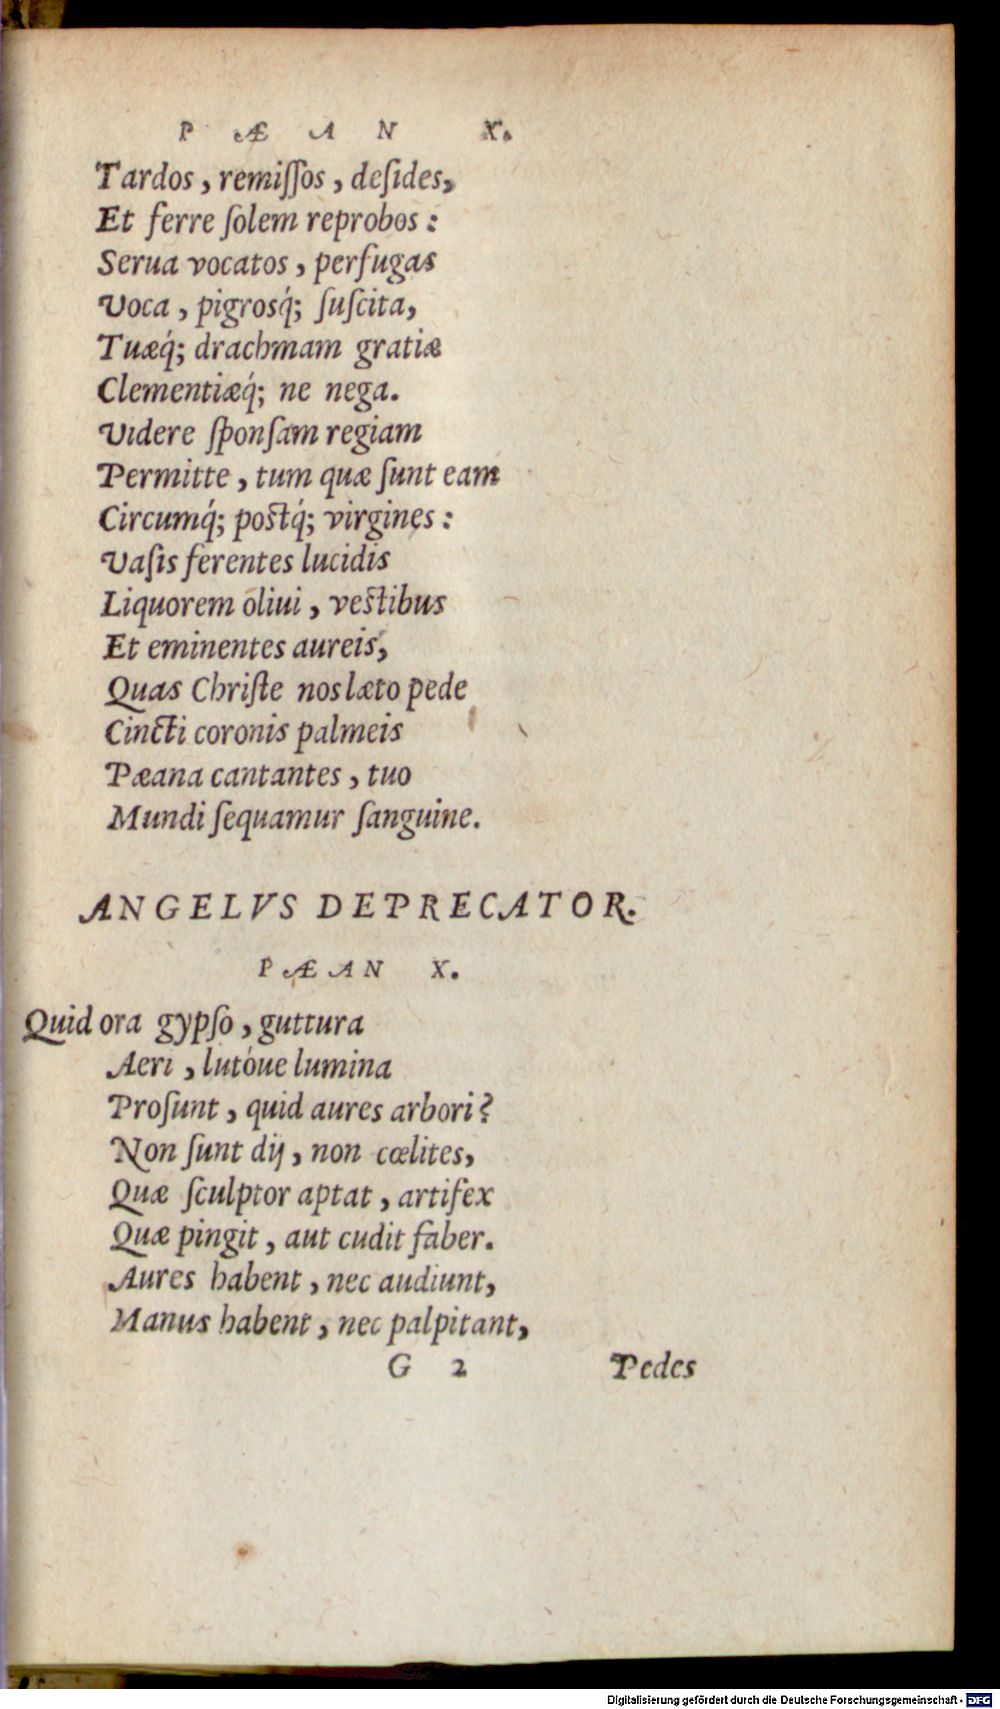 P Æ A N X.
Tardos, remiſſos, deſides,
Et ferre ſolem reprobos:
Serua vocatos, perfugas
Voca, pigrosq́; ſuſcita,
Tuæq́; drachmam gratiæ
Clementiæq́; ne nega.
Videre ſponſam regiam
Permitte, tum quæ ſunt eam
Circumq́; poſtq́; virgines:
Vaſis ferentes lucidis
Liquorem oliui, veſtibus
Et eminentes aureis,
Quas Chriſte nos læto pede
Cincti coronis palmeis
Pæana cantantes, tuo
Mundi ſequamur ſanguine.
ANGELVS DEPRECATOR.
PÆAN X.
Quid ora gypſo, guttura
Aeri, lutóue lumina
Proſunt, quid aures arbori?
Non ſunt dij, non cœlites,
Quæ ſculptor aptat, artifex
Quæ pingit, aut cudit faber.
Aures habent, nec audiunt,
Manus habent, nec palpitant,
G 2 Pedes
Digitalisierung gefördert durch die Deutsche Forschungsgemeinschaft - DFG